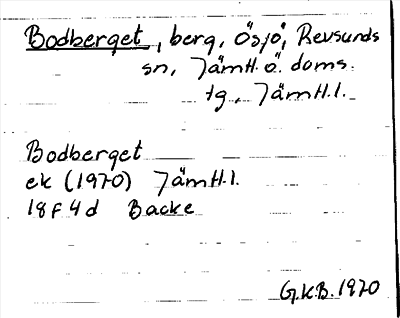 Bodberget, berg, Ösjö, Revsunds
sn, Jämtl. ö. doms.
tg, Jämtl. l.
Bodberget
ek (1970) Jämtl. l.
18 F 4 d Backe
G.K.B. 1970